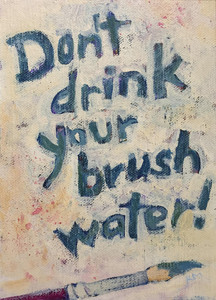 Don't
drink
your
brush
water!